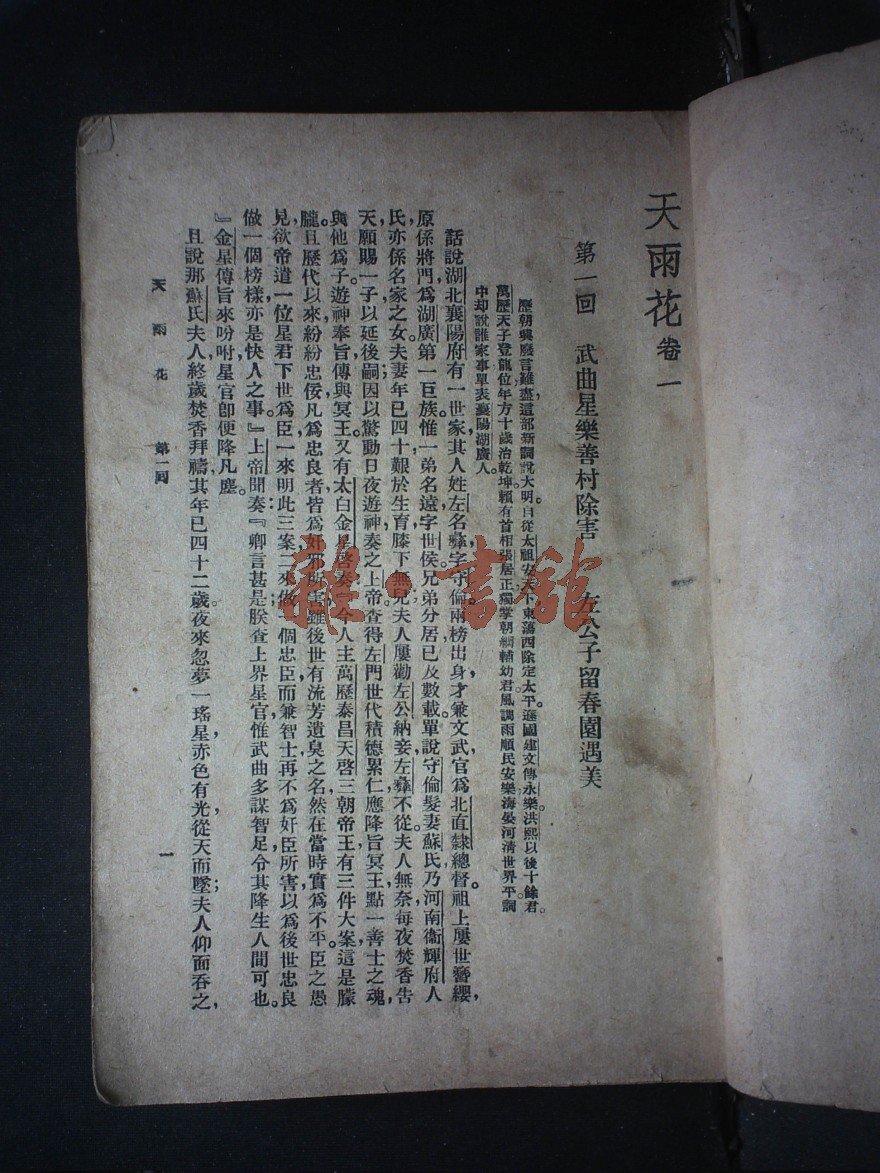 天雨花 卷一
第一回 武曲星樂善村除害 左公子留春園遇美
歷朝興廢言難盡這部新詞說大明自從太祖安天下東蕩西除定太平遜國建文傳永樂洪熙以後十餘君
萬歷天子登龍位年方十歲治乾坤賴有首相張居正獨掌朝綱輔幼君風調雨順民安樂海晏河清世界平詞
中却說誰家事單表襄陽湖廣人
話說湖北襄陽府有一世家其人姓左名彝字守倫兩榜出身才兼文武官爲北直隸總督祖上屢世簪纓
原係將門爲湖廣第一巨族惟一弟名遠字世侯兄弟分居已及數載單說守倫髮妻蘇氏乃河南衞輝府人
氏亦係名家之女夫妻年已四十艱於生育膝下無兒夫人屢勸左公納妾左彝不從夫人無奈每夜焚香告
天願賜一子以延後嗣因以驚動日夜遊神奏之上帝查得左門世代積德累仁應降旨冥王點一善士之魂
與他爲子遊神奉旨傳與冥王又有太白金星啓奏今人主萬歷泰昌天啓三朝帝王有三件大案這是朦
朧且歷代以來紛紛忠佞凡爲忠良者皆爲奸邪所害雖後世有流芳遺臭之名然在當時實爲不平臣之愚
見欲帝遣一位星君下世爲臣一來明此三案二來做一個忠臣而兼智士再不爲奸臣所害以爲後世忠良
做一個榜樣亦是快人之事』上帝聞奏『卿言甚是朕查上界星官惟武曲多謀智足令其降生人間可也
』金星傳旨來吩咐星官卽便降凡塵
且說那蘇氏夫人終歲焚香拜禱其年已四十二歲夜來忽夢一瑤星赤色有光從天而墜夫人仰面吞之
天雨花 第一回 一
雜·書館